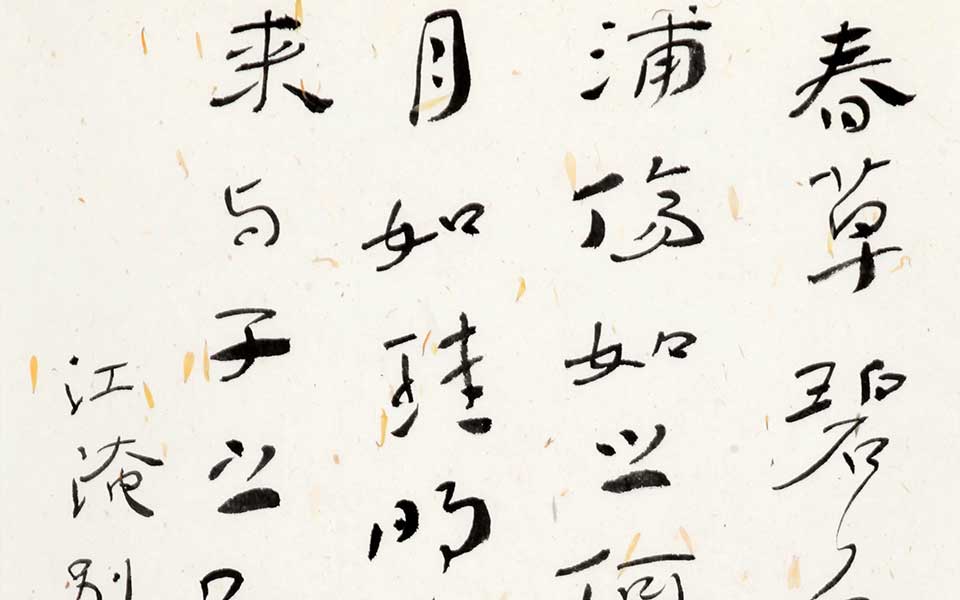 春草碧
浦傷如之何
月如珪明
来与子之
江淹别